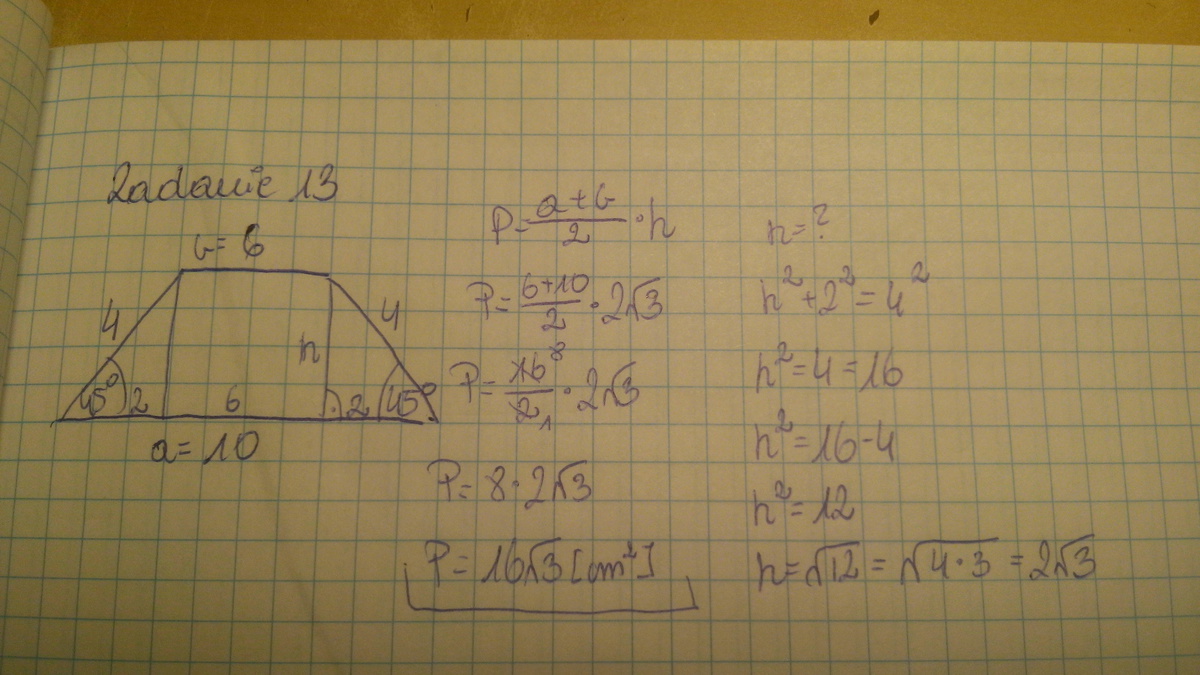 Zadanie 13
b = 6
4
4
h
45°
2
6
2
45°
a = 10
P = \frac{a+b}{2} · h
P = \frac{6+10}{2} · 2√3
P = \frac{16 8}{2 1} · 2√3
P = 8 · 2√3
P = 16√3 [cm²]
h = ?
h² + 2² = 4²
h² = 4 = 16
h² = 16 - 4
h² = 12
h = √12 = √4·3 = 2√3